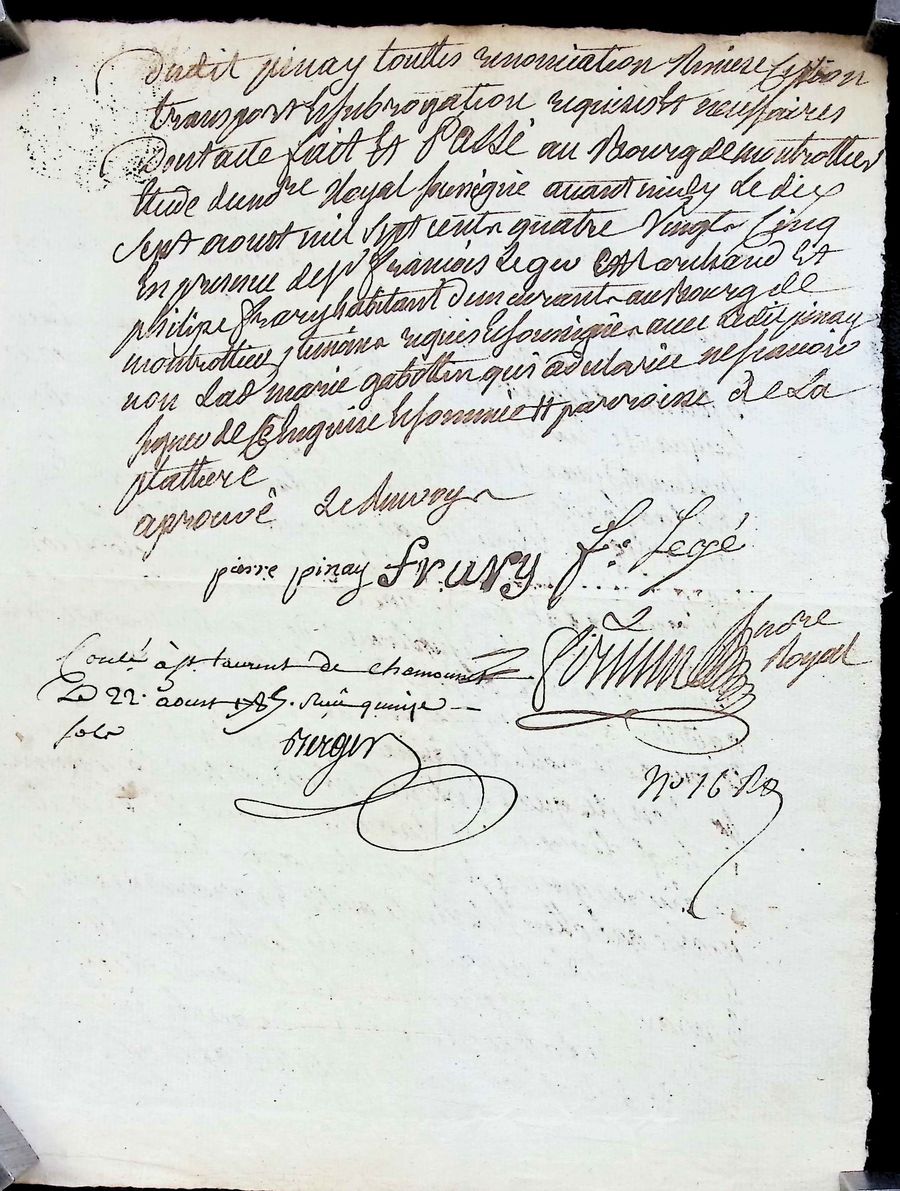 dudit pinay touttes renonciation Remise Cession
transport Et subrogation requises Et necessaires
Dont acte fait Et Passé au Bourg de montrottier
Etude du nore Royal soussigné avant midy le dix
sept aoust mil sept cent quatre Vingt Cinq
En presence de sr francois Leger Marchand Et
philipe frary habitant demeurant au bourg de
montrottier temoins requis Et soussignes avec Ledit pinay
non Lad marie gabottin qui a declarée ne scavoir
signer de Ce Enquise Et sommée parroisse de La
plattiere
aprouvé Le Renvoy
pierre pinay frary f. Legé
nore
Royal
Conlé à st Laurent de chamousset
Le 22. aoust 1785. Reçu quinze
sols
Berger
No 16